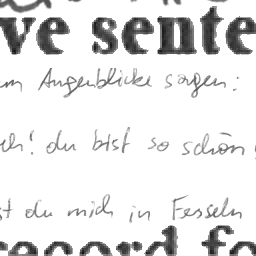 ve sente
um Augenblicke sagen:
ch! du bist so schön
st du mich in Fesseln
record fo